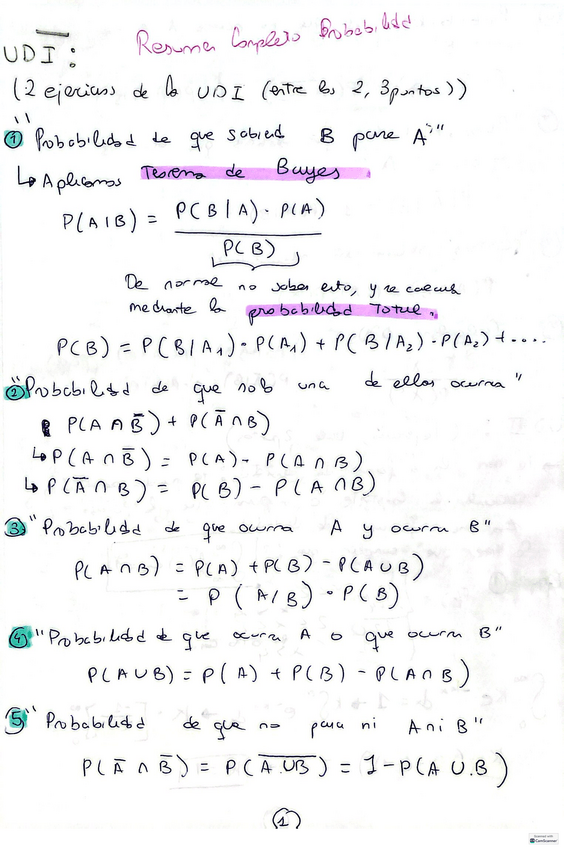 Resumen Completo Probabilidad
UDI:
(2 ejercicios de la UDI (entre los 2, 3 puntos))
① "Probabilidad de que sabiendo B pase A:"
↳ Aplicamos Teorema de Bayes
P(A|B) = P(B|A) · P(A) / P(B)
De normal no sabes esto, y se calcula
mediante la probabilidad Total.
P(B) = P(B/A₁) · P(A₁) + P(B/A₂) · P(A₂) + ....
② "Probabilidad de que solo una de ellos ocurra"
P(A ∩ B̅) + P(A̅ ∩ B)
↳ P(A ∩ B̅) = P(A) - P(A ∩ B)
↳ P(A̅ ∩ B) = P(B) - P(A ∩ B)
③ "Probabilidad de que ocurra A y ocurra B"
P(A ∩ B) = P(A) + P(B) - P(A∪B)
= P(A/B) · P(B)
④ "Probabilidad de que ocurra A o que ocurra B"
P(A∪B) = P(A) + P(B) - P(A∩B)
⑤ "Probabilidad de que no pase ni A ni B"
P(A̅ ∩ B̅) = P(A̅∪̅B̅) = 1 - P(A ∪ B)
①
CamScanner